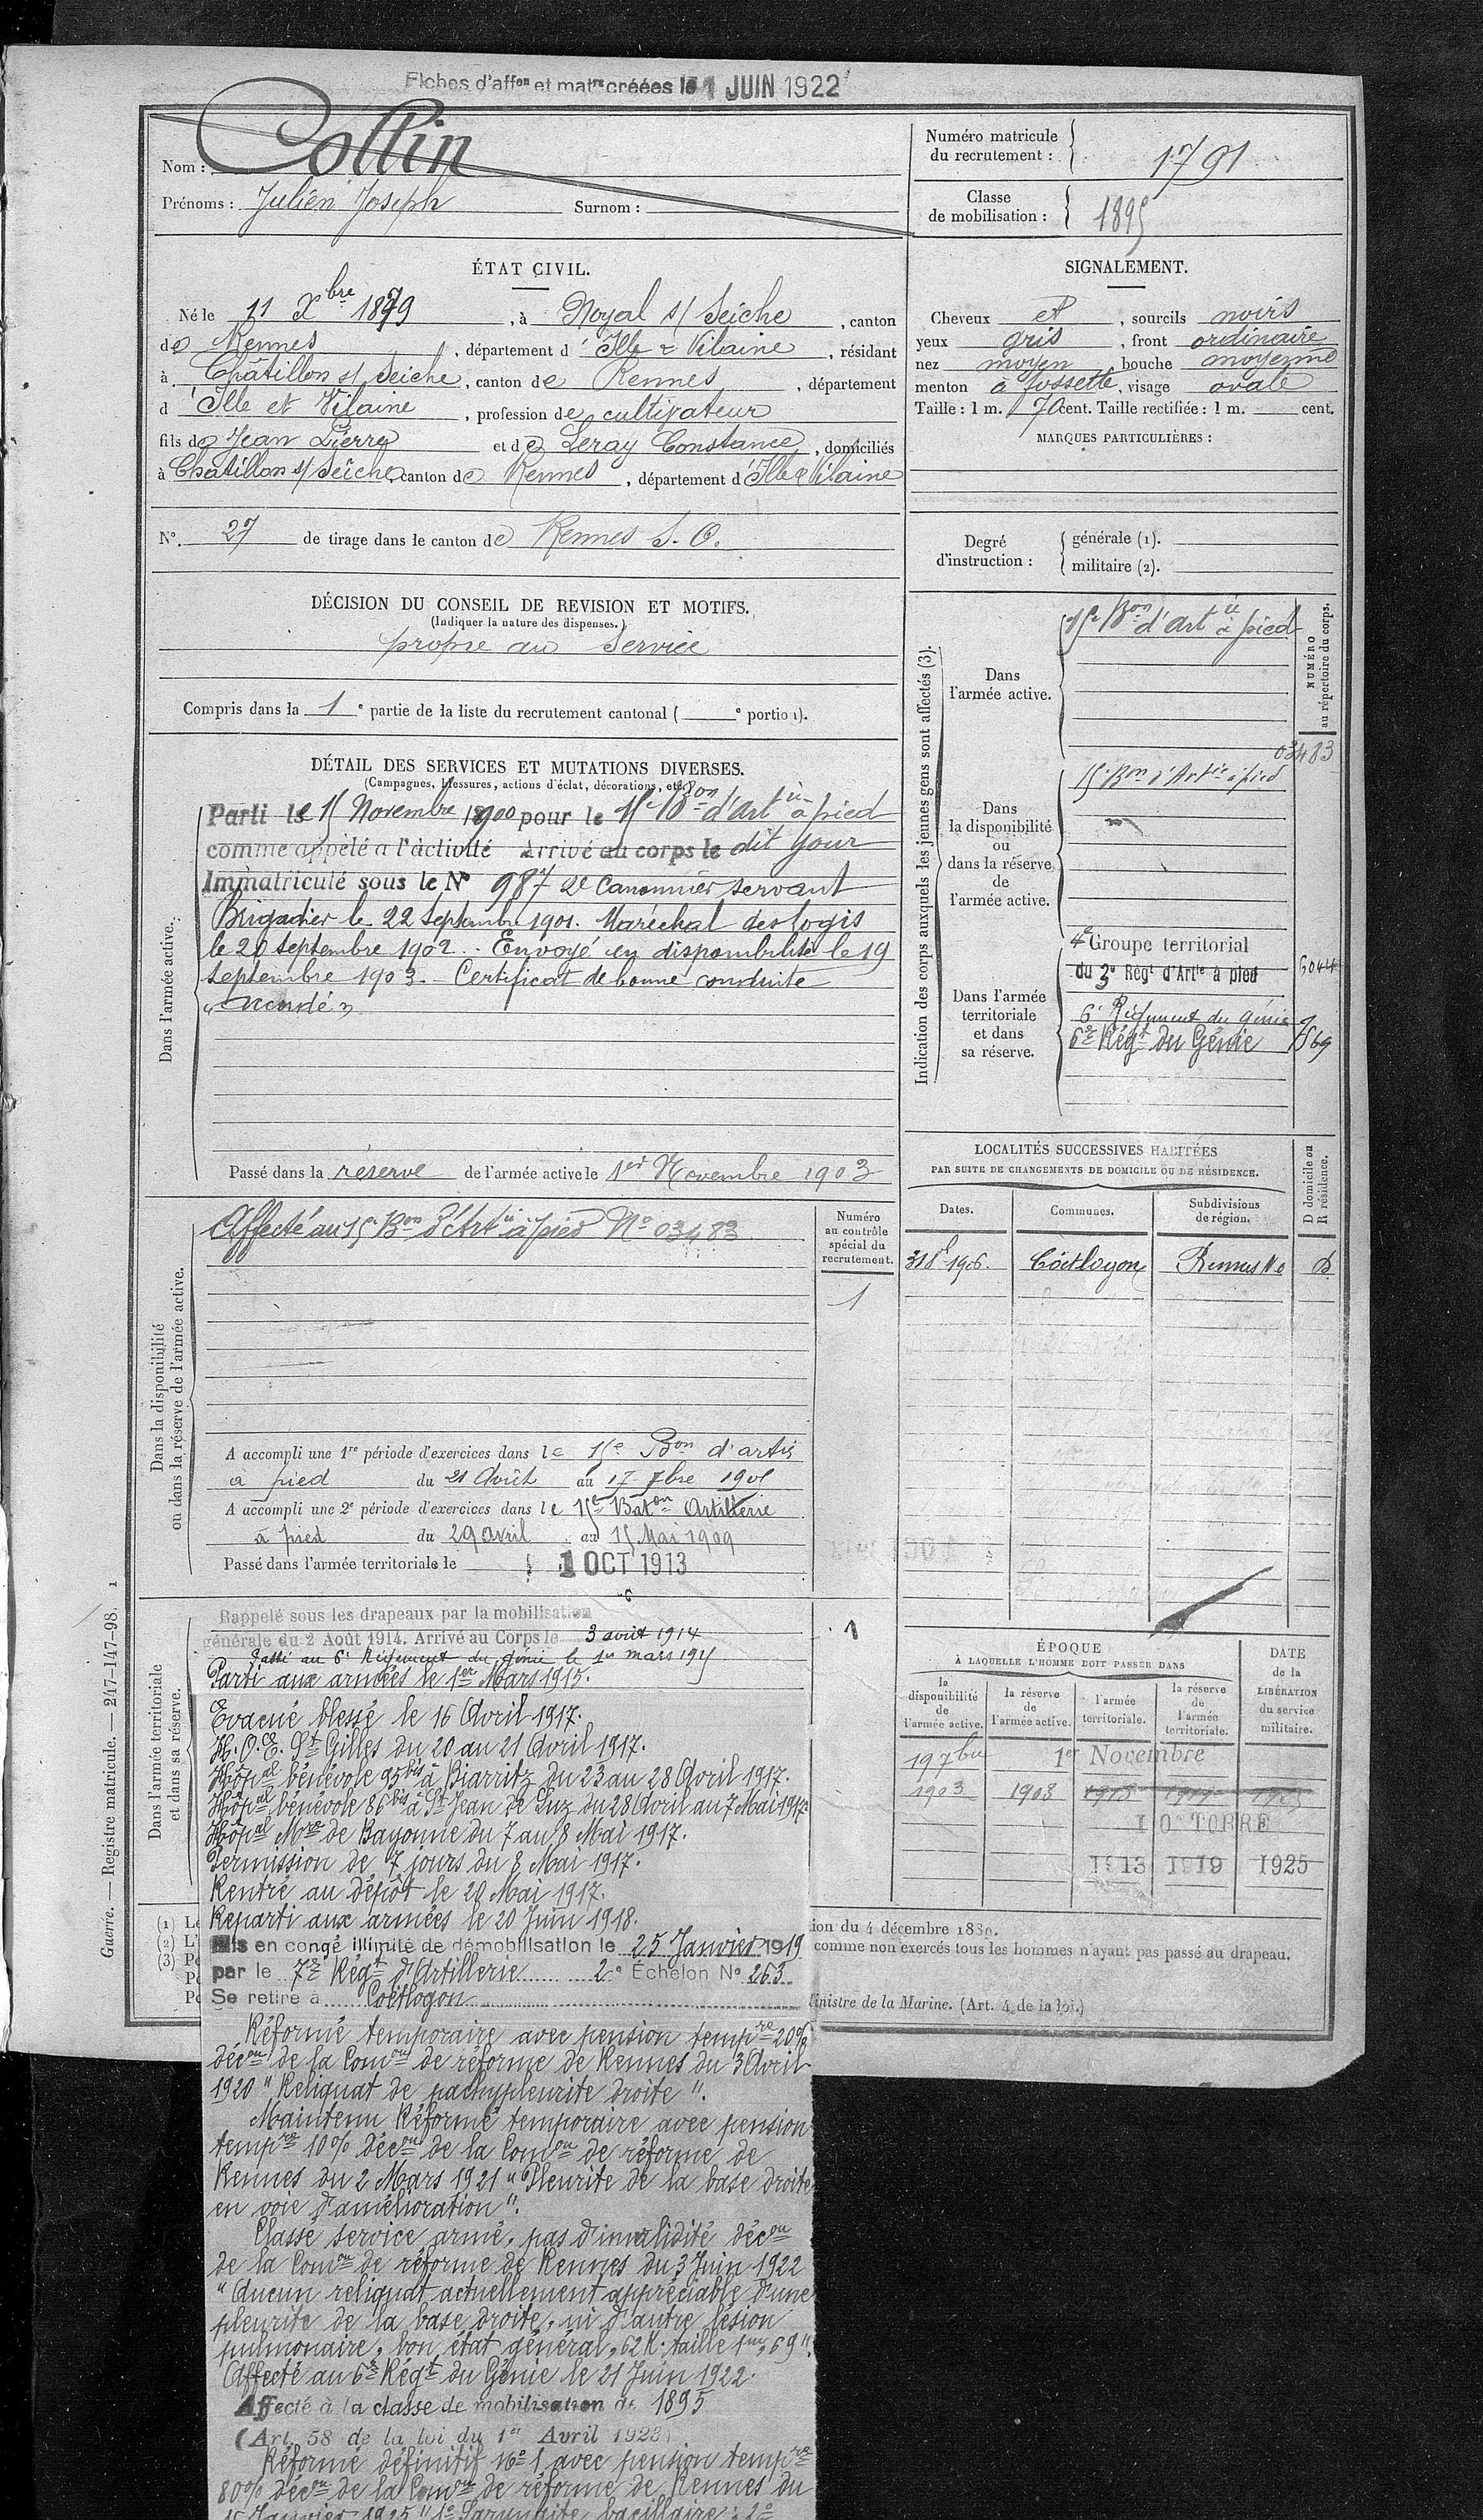 Fiches d'affon et matres créées le 1 JUIN 1922
Nom : Collin
Prénoms : Julien Joseph Surnom :
Numéro matricule du recrutement : 1791
Classe de mobilisation : 1895
ÉTAT CIVIL.
Né le 11 Xbre 1879, à Noyal s/ Seiche, canton
de Rennes, département d'Ille & Vilaine, résidant
à Châtillon s/ Seiche, canton de Rennes, département
d'Ille et Vilaine, profession de cultivateur
fils de Jean Pierre et de Leray Constance, domiciliés
à Chatillon s/ Seiche, canton de Rennes, département d'Ille & Vilaine
N°. 27 de tirage dans le canton de Rennes S. O.
SIGNALEMENT.
Cheveux et, sourcils noirs
yeux gris, front ordinaire
nez moyen bouche moyenne
menton à fossette, visage ovale
Taille : 1 m. 70 cent. Taille rectifiée : 1 m. cent.
MARQUES PARTICULIÈRES :
Degré d'instruction : générale (1).
militaire (2).
DÉCISION DU CONSEIL DE REVISION ET MOTIFS.
(Indiquer la nature des dispenses.)
propre au service
Compris dans la 1e partie de la liste du recrutement cantonal ( e portion).
DÉTAIL DES SERVICES ET MUTATIONS DIVERSES.
(Campagnes, blessures, actions d'éclat, décorations, etc.)
Dans l'armée active.
Parti le 15 Novembre 1900 pour le 15e Bon d'Artie à pied
comme appelé à l'activité Arrivé au corps le dit jour
Immatriculé sous le N° 987 2e Canonnier servant
Brigadier le 22 Septembre 1901. Maréchal des logis
le 20 septembre 1902. Envoyé en disponibilité le 19
septembre 1903. Certificat de bonne conduite
"accordé"
Passé dans la réserve de l'armée active le 1er Novembre 1903
Indication des corps auxquels les jeunes gens sont affectés (3).
NUMÉRO au répertoire du corps.
Dans l'armée active.
15e Bon d'Artie à pied
03483
Dans la disponibilité ou dans la réserve de l'armée active.
15e Bon d'Artie à pied
Dans l'armée territoriale et dans sa réserve.
4e Groupe territorial
du 3e Régt d'Artie à pied
6e Régiment du génie
6e Régt du Génie
Dans la disponibilité ou dans la réserve de l'armée active.
Affecté au 15e Bon d'Artie à pied N° 03483
Numéro au contrôle spécial du recrutement.
1
A accompli une 1re période d'exercices dans le 15e Bon d'artie
à pied du 21 Août au 17 7bre
A accompli une 2e période d'exercices dans le 15e Baton Artillerie
à pied du 29 avril au 15 Mai 1909
Passé dans l'armée territoriale le 1 OCT 1913
LOCALITÉS SUCCESSIVES HABITÉES
PAR SUITE DE CHANGEMENTS DE DOMICILE OU DE RÉSIDENCE.
Dates. Communes. Subdivisions de région. D domicile ou R résidence.
1906. Coëtlogon Rennes D
Dans l'armée territoriale et dans sa réserve.
Rappelé sous les drapeaux par la mobilisation
générale du 2 Août 1914. Arrivé au Corps le 3 août 1914
Passé au 6e Régiment du génie le 1er mars 1915
Parti aux armées le 1er Mars 1915.
Evacué blessé le 16 Avril 1917.
H.O.E. St Gilles du 20 au 21 Avril 1917.
Hôpal bénévole 95bis à Biarritz du 23 au 28 Avril 1917.
Hôpal bénévole 86bis à St Jean de Luz du 28 Avril au 7 Mai 1917.
Hôpal Mre de Bayonne du 7 au 8 Mai 1917.
Permission de 7 jours du 8 Mai 1917.
Rentré au dépôt le 20 Mai 1917.
Reparti aux armées le 20 Juin 1918.
Mis en congé illimité de démobilisation le 25 Janvier 1919
par le 7e Régt d'Artillerie 2e Échelon N° 263
Se retire à Coëtlogon
1
ÉPOQUE
À LAQUELLE L'HOMME DOIT PASSER DANS
la disponibilité de l'armée active. la réserve de l'armée active. l'armée territoriale. la réserve de l'armée territoriale. DATE de la LIBÉRATION du service militaire.
19 7bre 1er Novembre
1903 1903
1913 1919 1925
ion du 4 décembre 1889.
comme non exercés tous les hommes n'ayant pas passé au drapeau.
Ministre de la Marine. (Art. 4 de la loi.)
Guerre. — Registre matricule. — 247-147-98. 1
Réformé temporaire avec pension tempre 20%
décon de la Comon de réforme de Rennes du 3 Avril
1920 "Reliquat de pachypleurite droite".
Maintenu Réformé temporaire avec pension
tempre 10% décon de la Comon de réforme de
Rennes du 2 Mars 1921 "Pleurite de la base droite
en voie d'amélioration".
Classé service armé, pas d'invalidité décon
de la Comon de réforme de Rennes du 3 Juin 1922
"Aucun reliquat actuellement appréciable d'une
pleurite de la base droite, ni d'autre lésion
pulmonaire, bon état général, 62 K. taille 1m,69".
Affecté au 6e Régt du Génie le 21 Juin 1922.
Affecté à la classe de mobilisation de 1895
(Art. 58 de la loi du 1er Avril 1923)
Réformé définitif N° 1 avec pension tempre
80% décon de la Comon de réforme de Rennes du
15 Janvier 1925 "1° Laryngite bacillaire; 2°